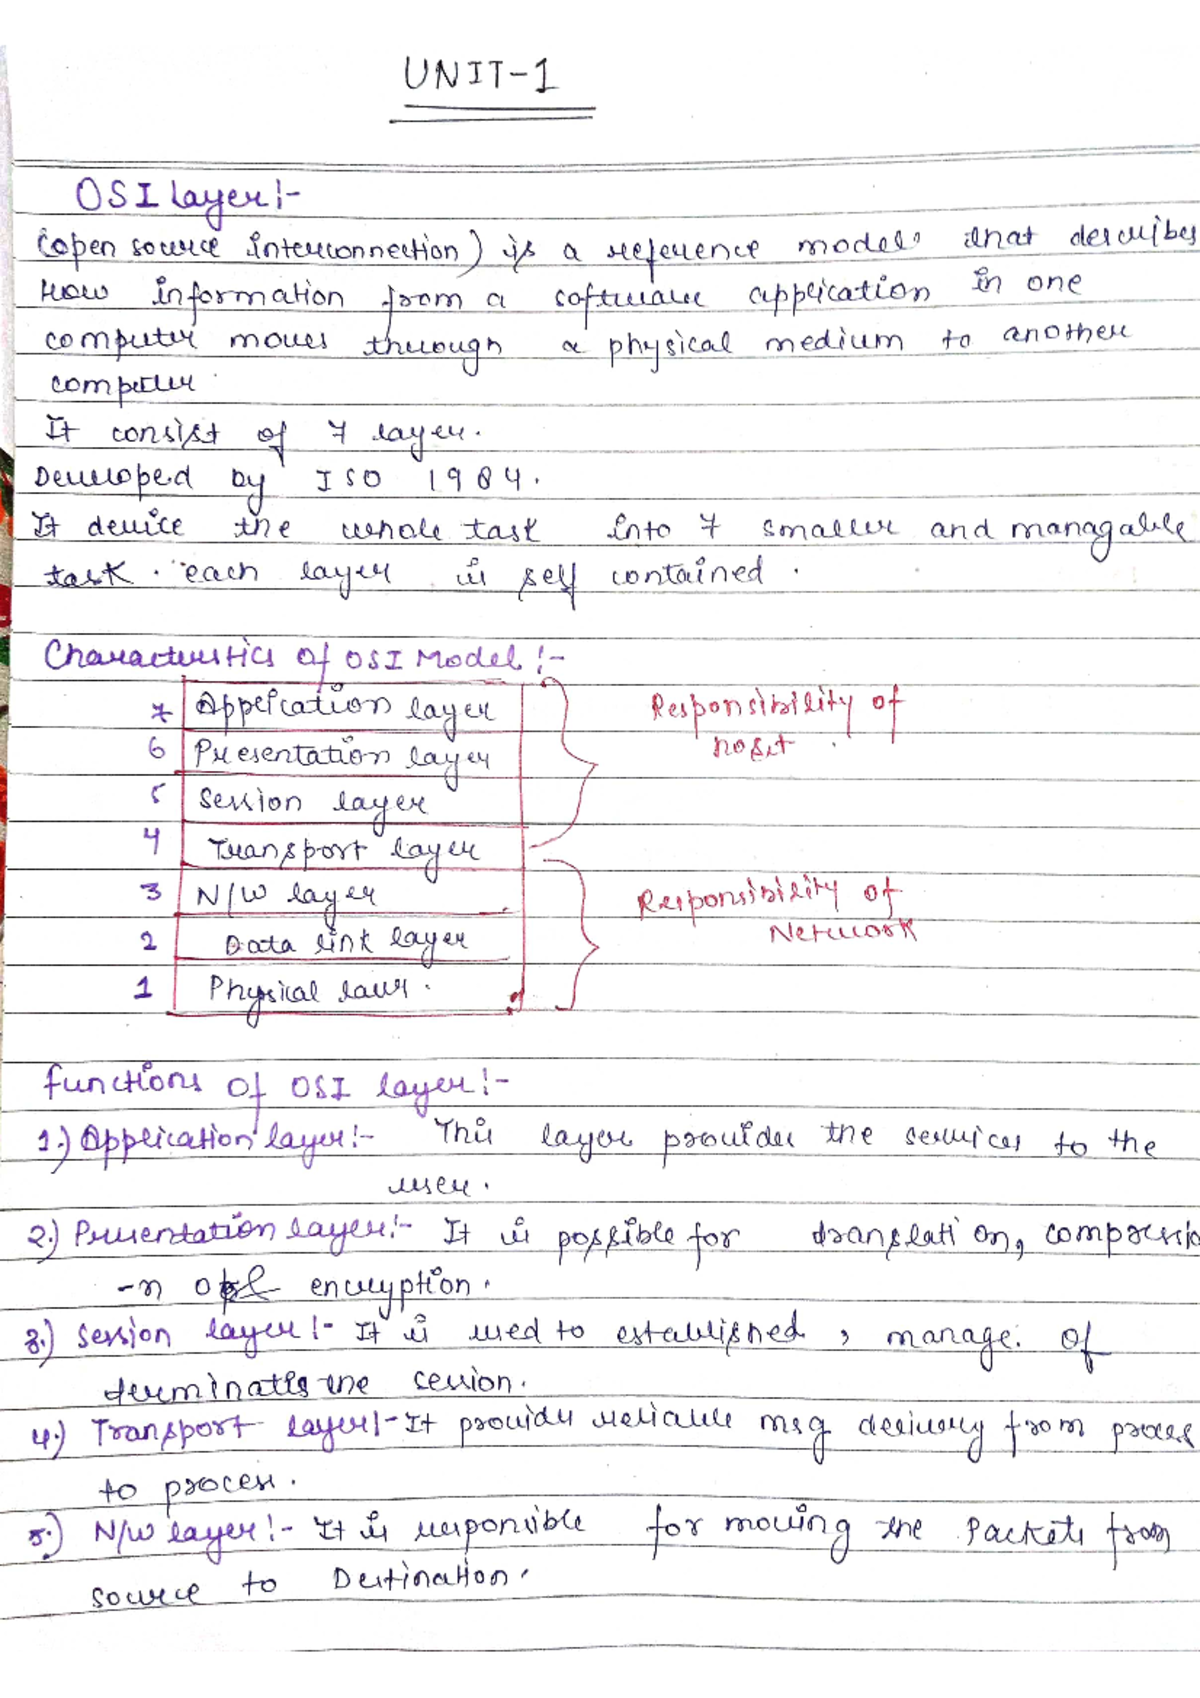 UNIT-1
OSI layer:-
(open source interconnection) is a reference model that describes
How information from a software application in one
computer moves through a physical medium to another
computer.
It consist of 7 layer.
Developed by ISO 1984.
It devide the whole task into 7 smaller and managable
task. each layer is self contained.
Characteristics of OSI Model:-
7 Application layer
Responsibility of
host.
6 Presentation layer
5 Session layer
4 Transport layer
3 N/W layer
Responsibility of
Network
2 Data link layer
1 Physical
functions of OSI layer:-
1.) Application layer:- This layer provides the services to the
user.
2.) Presentation layer:- It is possible for translation, compressio
-n & encryption.
3.) Session layer:- It is used to established, manage. of
terminates the session.
4.) Transport layer:- It provides reliable msg delivery from process
to process.
5.) N/W layer:- It is responsible for moving the Packets from
source to Destination.